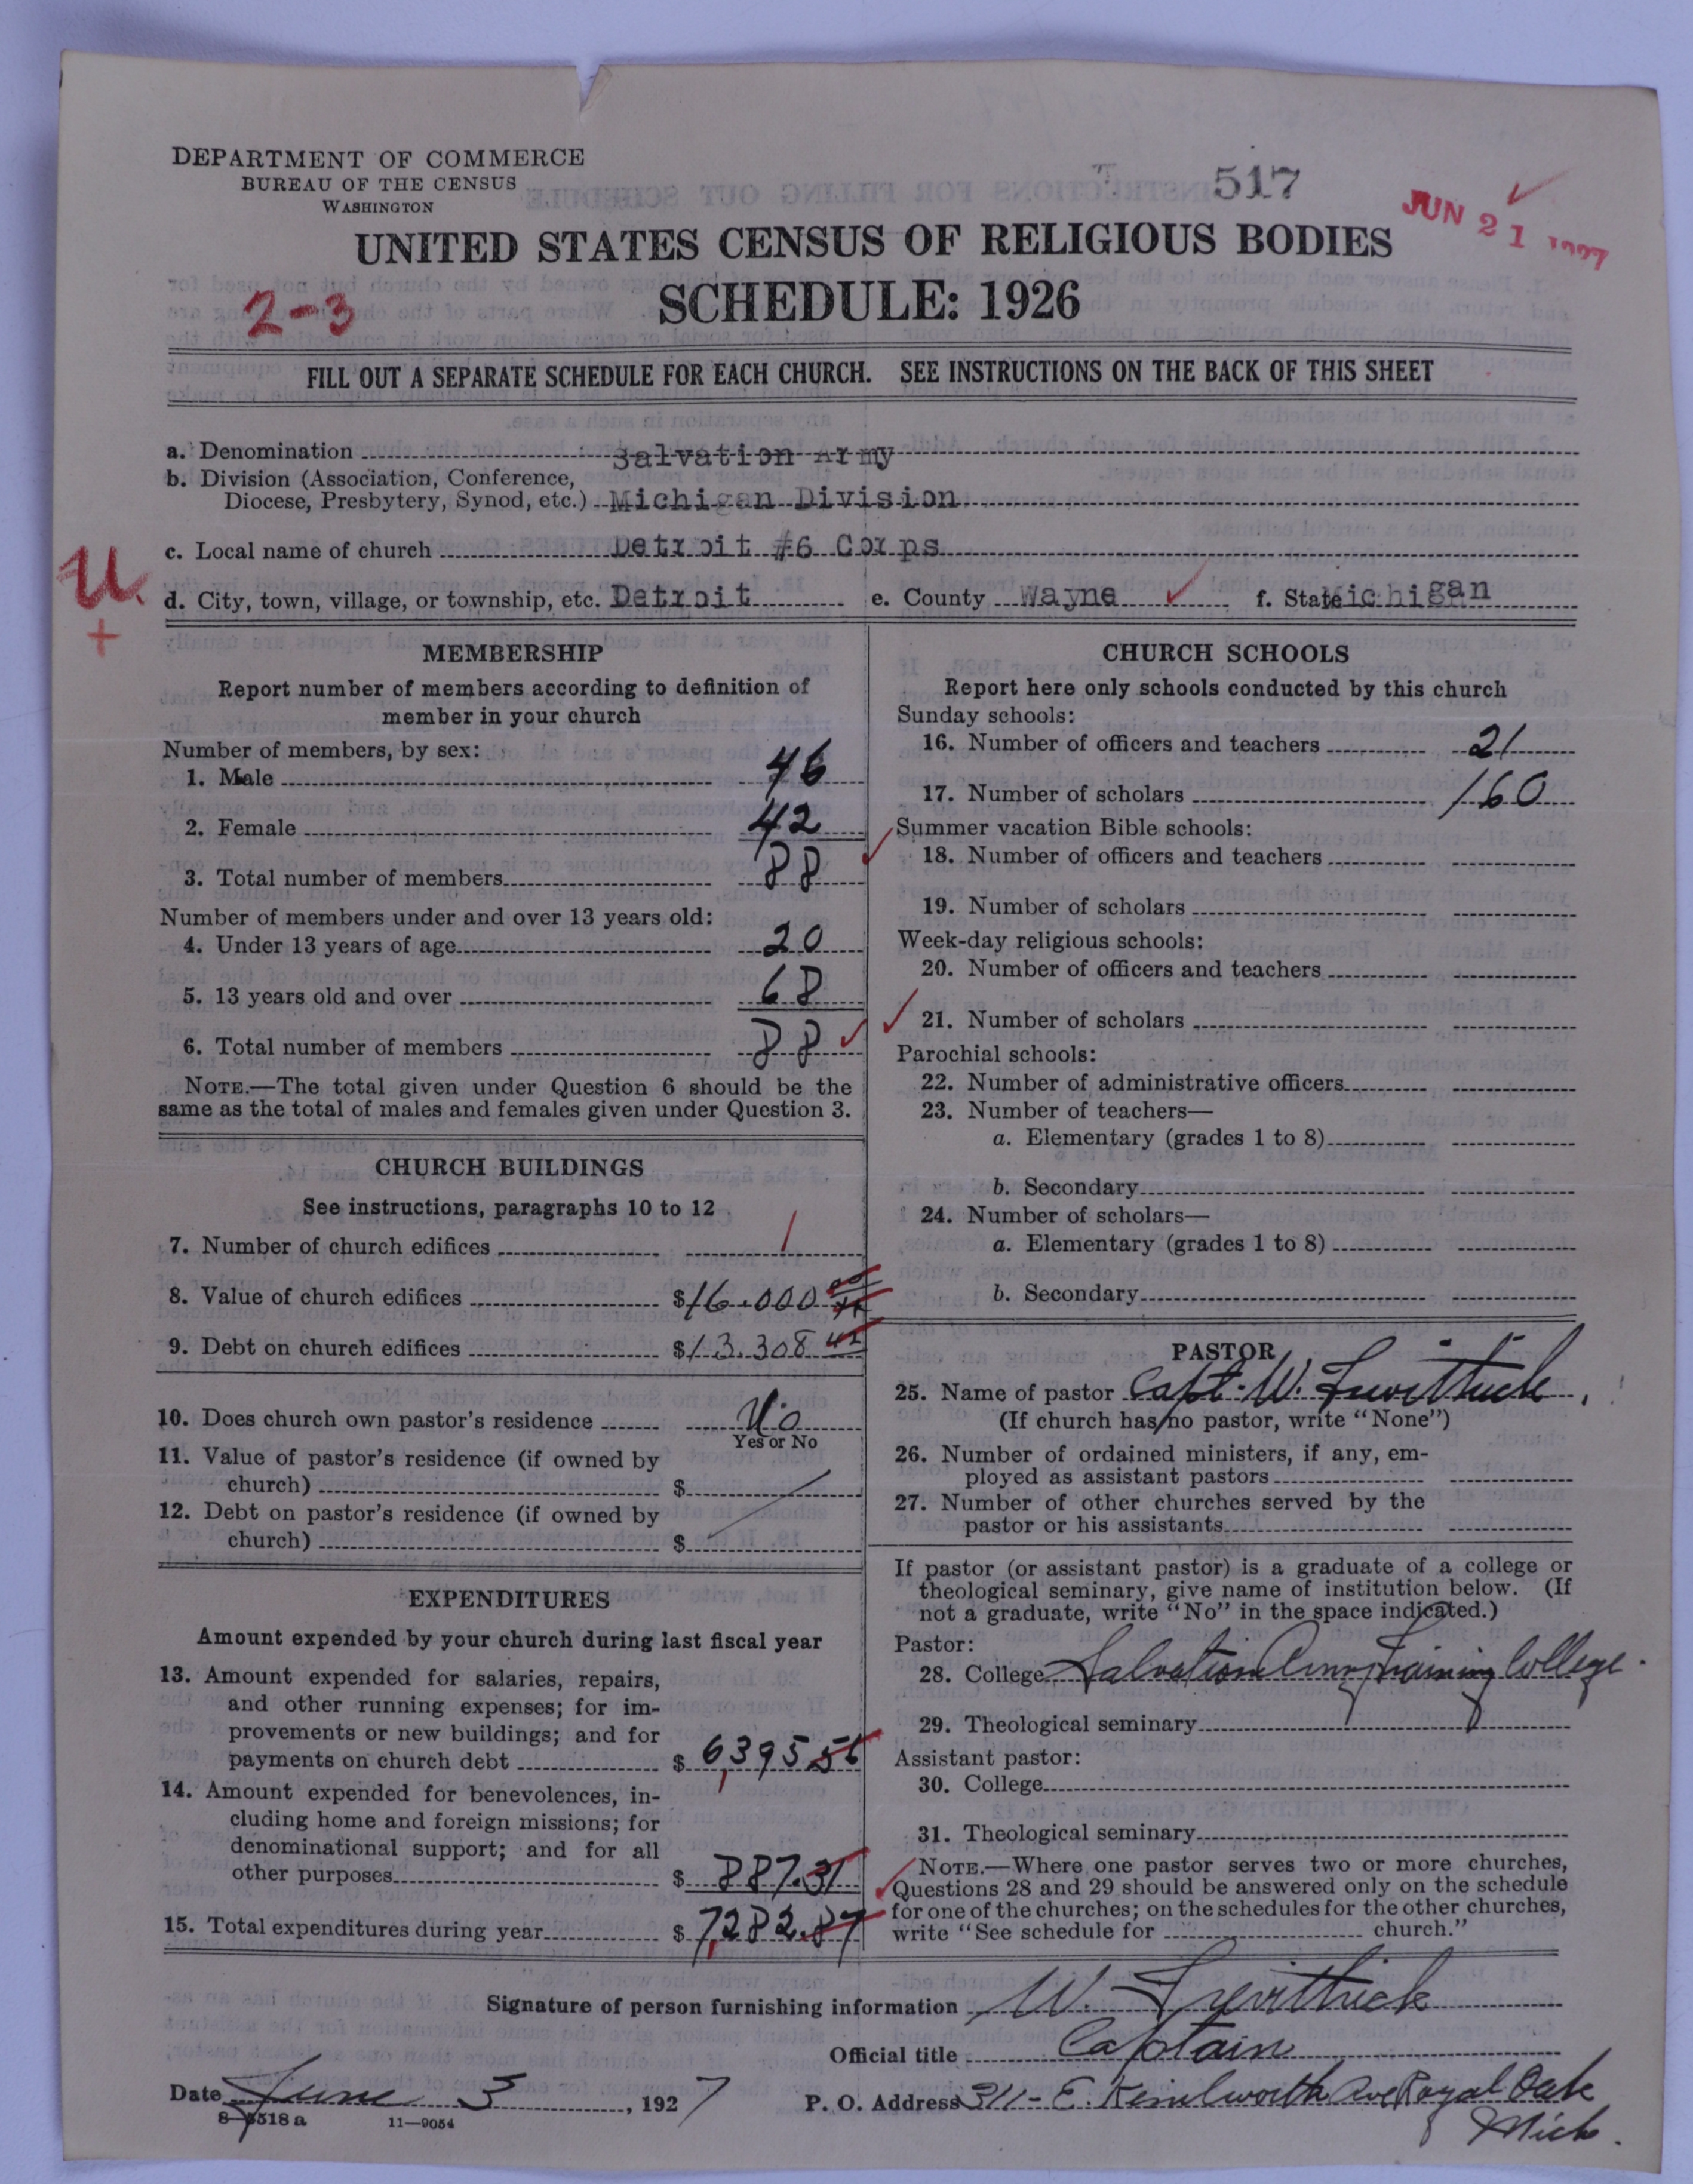 DEPARTMENT OF COMMERCE
BUREAU OF THE CENSUS
WASHINGTON
517
JUN 21 1927
UNITED STATES CENSUS OF RELIGIOUS BODIES
SCHEDULE: 1926
2-3
FILL OUT A SEPARATE SCHEDULE FOR EACH CHURCH. SEE INSTRUCTIONS ON THE BACK OF THIS SHEET
a. Denomination Salvation Army
b. Division (Association, Conference,
Diocese, Presbytery, Synod, etc.) Michigan Division
c. Local name of church Detroit #6 Corps
U.
+
d. City, town, village, or township, etc. Detroit e. County Wayne f. State Michigan
MEMBERSHIP
Report number of members according to definition of
member in your church
Number of members, by sex:
1. Male 46
2. Female 42
3. Total number of members 88
Number of members under and over 13 years old:
4. Under 13 years of age 20
5. 13 years old and over 68
6. Total number of members 88
NOTE.—The total given under Question 6 should be the
same as the total of males and females given under Question 3.
CHURCH BUILDINGS
See instructions, paragraphs 10 to 12
7. Number of church edifices 1
8. Value of church edifices $16.000
9. Debt on church edifices $13.308 41
10. Does church own pastor's residence No
Yes or No
11. Value of pastor's residence (if owned by
church) $
12. Debt on pastor's residence (if owned by
church) $
EXPENDITURES
Amount expended by your church during last fiscal year
13. Amount expended for salaries, repairs,
and other running expenses; for im-
provements or new buildings; and for
payments on church debt $ 6,395.56
14. Amount expended for benevolences, in-
cluding home and foreign missions; for
denominational support; and for all
other purposes $ 887.31
15. Total expenditures during year $ 7,282.87
CHURCH SCHOOLS
Report here only schools conducted by this church
Sunday schools:
16. Number of officers and teachers 21
17. Number of scholars 160
Summer vacation Bible schools:
18. Number of officers and teachers
19. Number of scholars
Week-day religious schools:
20. Number of officers and teachers
21. Number of scholars
Parochial schools:
22. Number of administrative officers
23. Number of teachers—
a. Elementary (grades 1 to 8)
b. Secondary
24. Number of scholars—
a. Elementary (grades 1 to 8)
b. Secondary
PASTOR
25. Name of pastor Capt. W.
(If church has no pastor, write "None")
26. Number of ordained ministers, if any, em-
ployed as assistant pastors
27. Number of other churches served by the
pastor or his assistants
If pastor (or assistant pastor) is a graduate of a college or
theological seminary, give name of institution below. (If
not a graduate, write "No" in the space indicated.)
Pastor:
28. College Salvation Army Training College.
29. Theological seminary
Assistant pastor:
30. College
31. Theological seminary
NOTE.—Where one pastor serves two or more churches,
Questions 28 and 29 should be answered only on the schedule
for one of the churches; on the schedules for the other churches,
write "See schedule for church."
Signature of person furnishing information W.
Official title Captain
Date June 3, 1927 P. O. Address 311 - E. Kenilworth Ave Royal Oak
Mich.
8-5518 a 11-9054